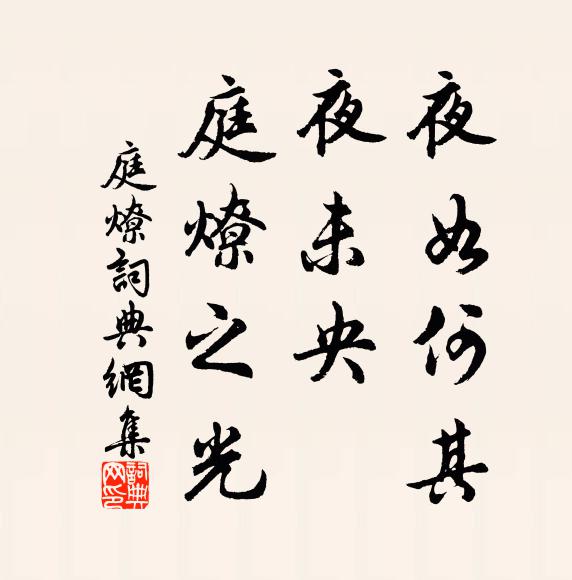 夜如何其
夜未央
庭燎之光
庭燎詞典網集
詞典
网印